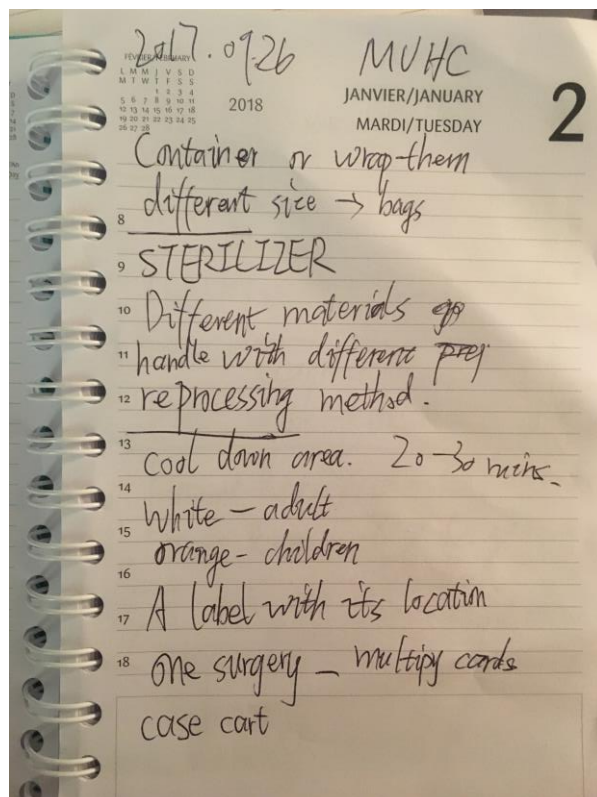 2017.09.26 MUHC
FÉVRIER/FEBRUARY
L M M J V S D
M T W T F S S
1 2 3 4
5 6 7 8 9 10 11
12 13 14 15 16 17 18
19 20 21 22 23 24 25
26 27 28
2018
JANVIER/JANUARY
MARDI/TUESDAY
2
Container or wrap them
different size → bags
8
9 STERILIZER
10 Different materials
11 handle with different
12 reprocessing method.
13 cool down area. 20-30 mins.
14
white - adult
15
orange - children
16
17 A label with its location
18 one surgery - multipy cards
case cart